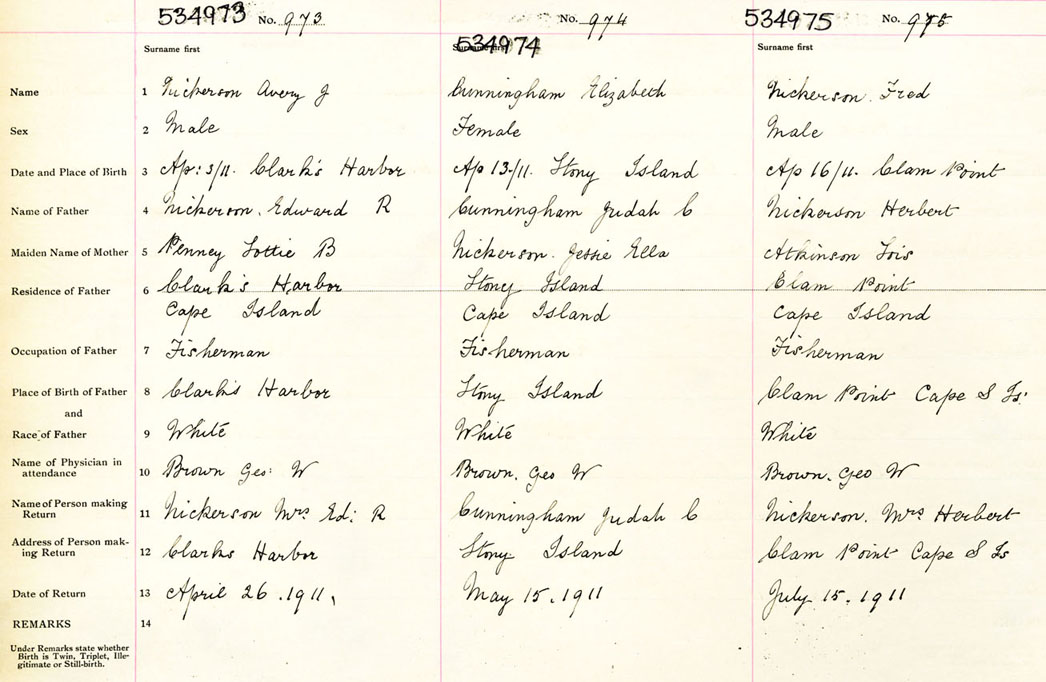 534973 No. 973 No. 974 534975 No. 975
Surname first 534974 Surname first Surname first
Name 1 Nickerson Avery J Cunningham Elizabeth Nickerson. Fred
Sex 2 Male Female Male
Date and Place of Birth 3 Ap: 3/11. Clark's Harbor Ap 13/11. Stony Island Ap 16/11. Clam Point
Name of Father 4 Nickerson. Edward R Cunningham Judah C Nickerson Herbert
Maiden Name of Mother 5 Penney Lottie B Nickerson. Jessie Ella Atkinson Lois
Residence of Father 6 Clark's Harbor Stony Island Clam Point
Cape Island Cape Island Cape Island
Occupation of Father 7 Fisherman Fisherman Fisherman
Place of Birth of Father 8 Clark's Harbor Stony Island Clam Point Cape S Is.
and
Race of Father 9 White White White
Name of Physician in
attendance 10 Brown Geo: W Brown. Geo W Brown. Geo W
Name of Person making
Return 11 Nickerson Mrs Ed: R Cunningham Judah C Nickerson. Mrs Herbert
Address of Person mak-
ing Return 12 Clarks Harbor Stony Island Clam Point Cape S Is
Date of Return 13 April 26. 1911, May 15. 1911 July 15. 1911
REMARKS 14
Under Remarks state whether
Birth is Twin, Triplet, Ille-
gitimate or Still-birth.